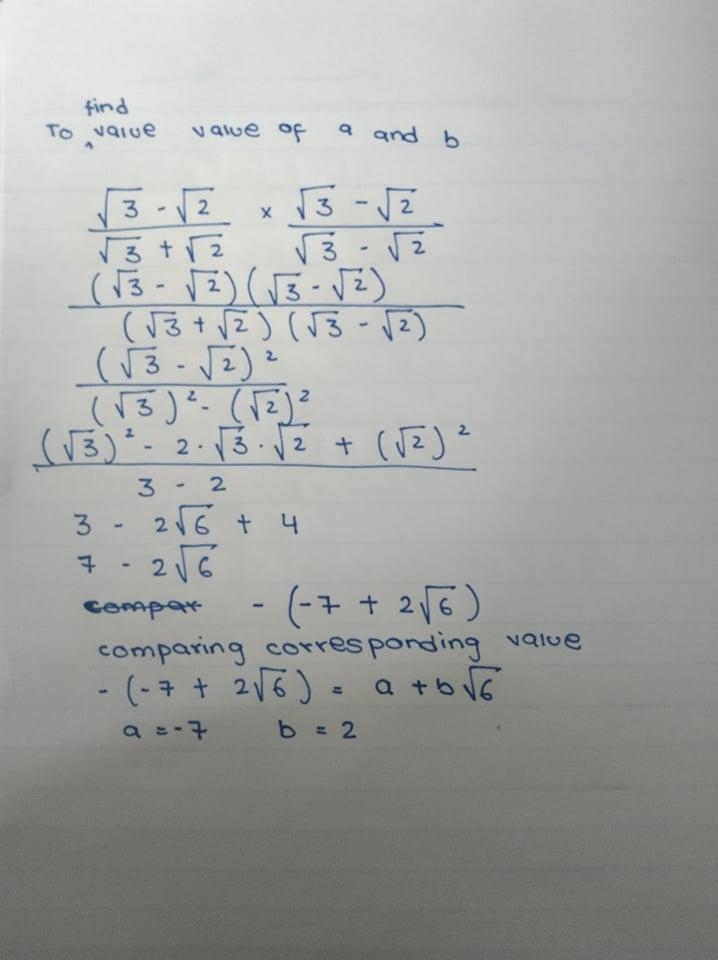 find
To ‸ value value of a and b
√3 - √2 / √3 + √2 × √3 - √2 / √3 - √2
(√3 - √2)(√3 - √2) / (√3 + √2)(√3 - √2)
(√3 - √2)² / (√3)² - (√2)²
(√3)² - 2·√3·√2 + (√2)² / 3 - 2
3 - 2√6 + 4
7 - 2√6
compar - (-7 + 2√6)
comparing corresponding value
- (-7 + 2√6) = a + b√6
a = -7 b = 2